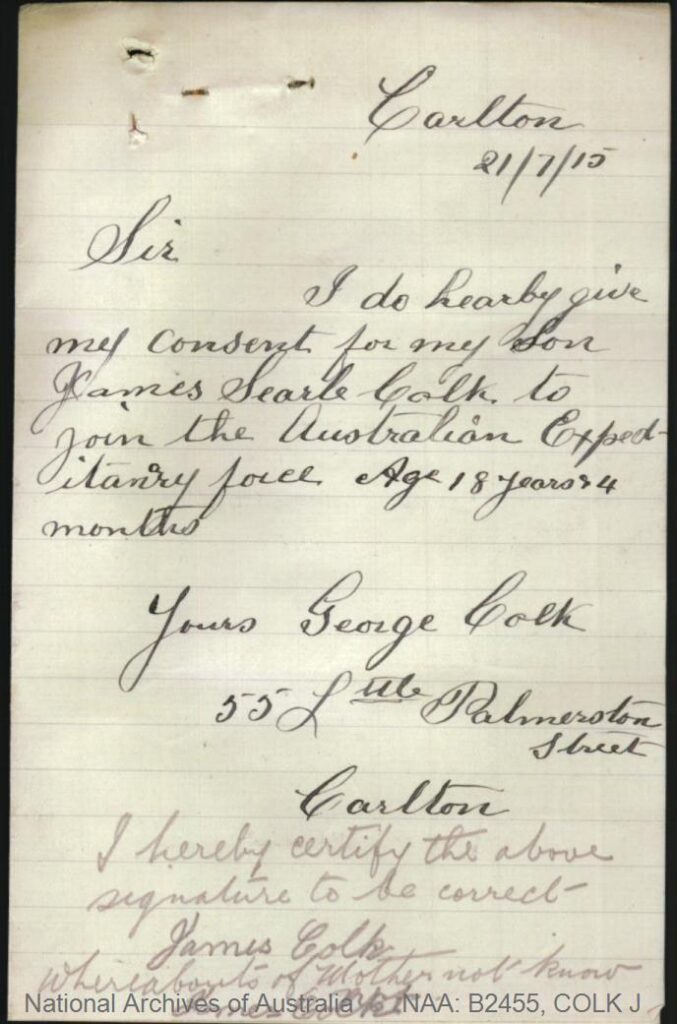 Carlton
21/7/15
Sir
I do hearby give
my consent for my Son
James Searle Colk to
join the Australian Exped-
itanry force Age 18 years & 4
months
Yours George Colk
55 Lttle Palmerston
Street
Carlton
I hereby certify the above
signature to be correct
James Colk
Whereabouts of Mother not know
James Colk
National Archives of Australia NAA: B2455, COLK J